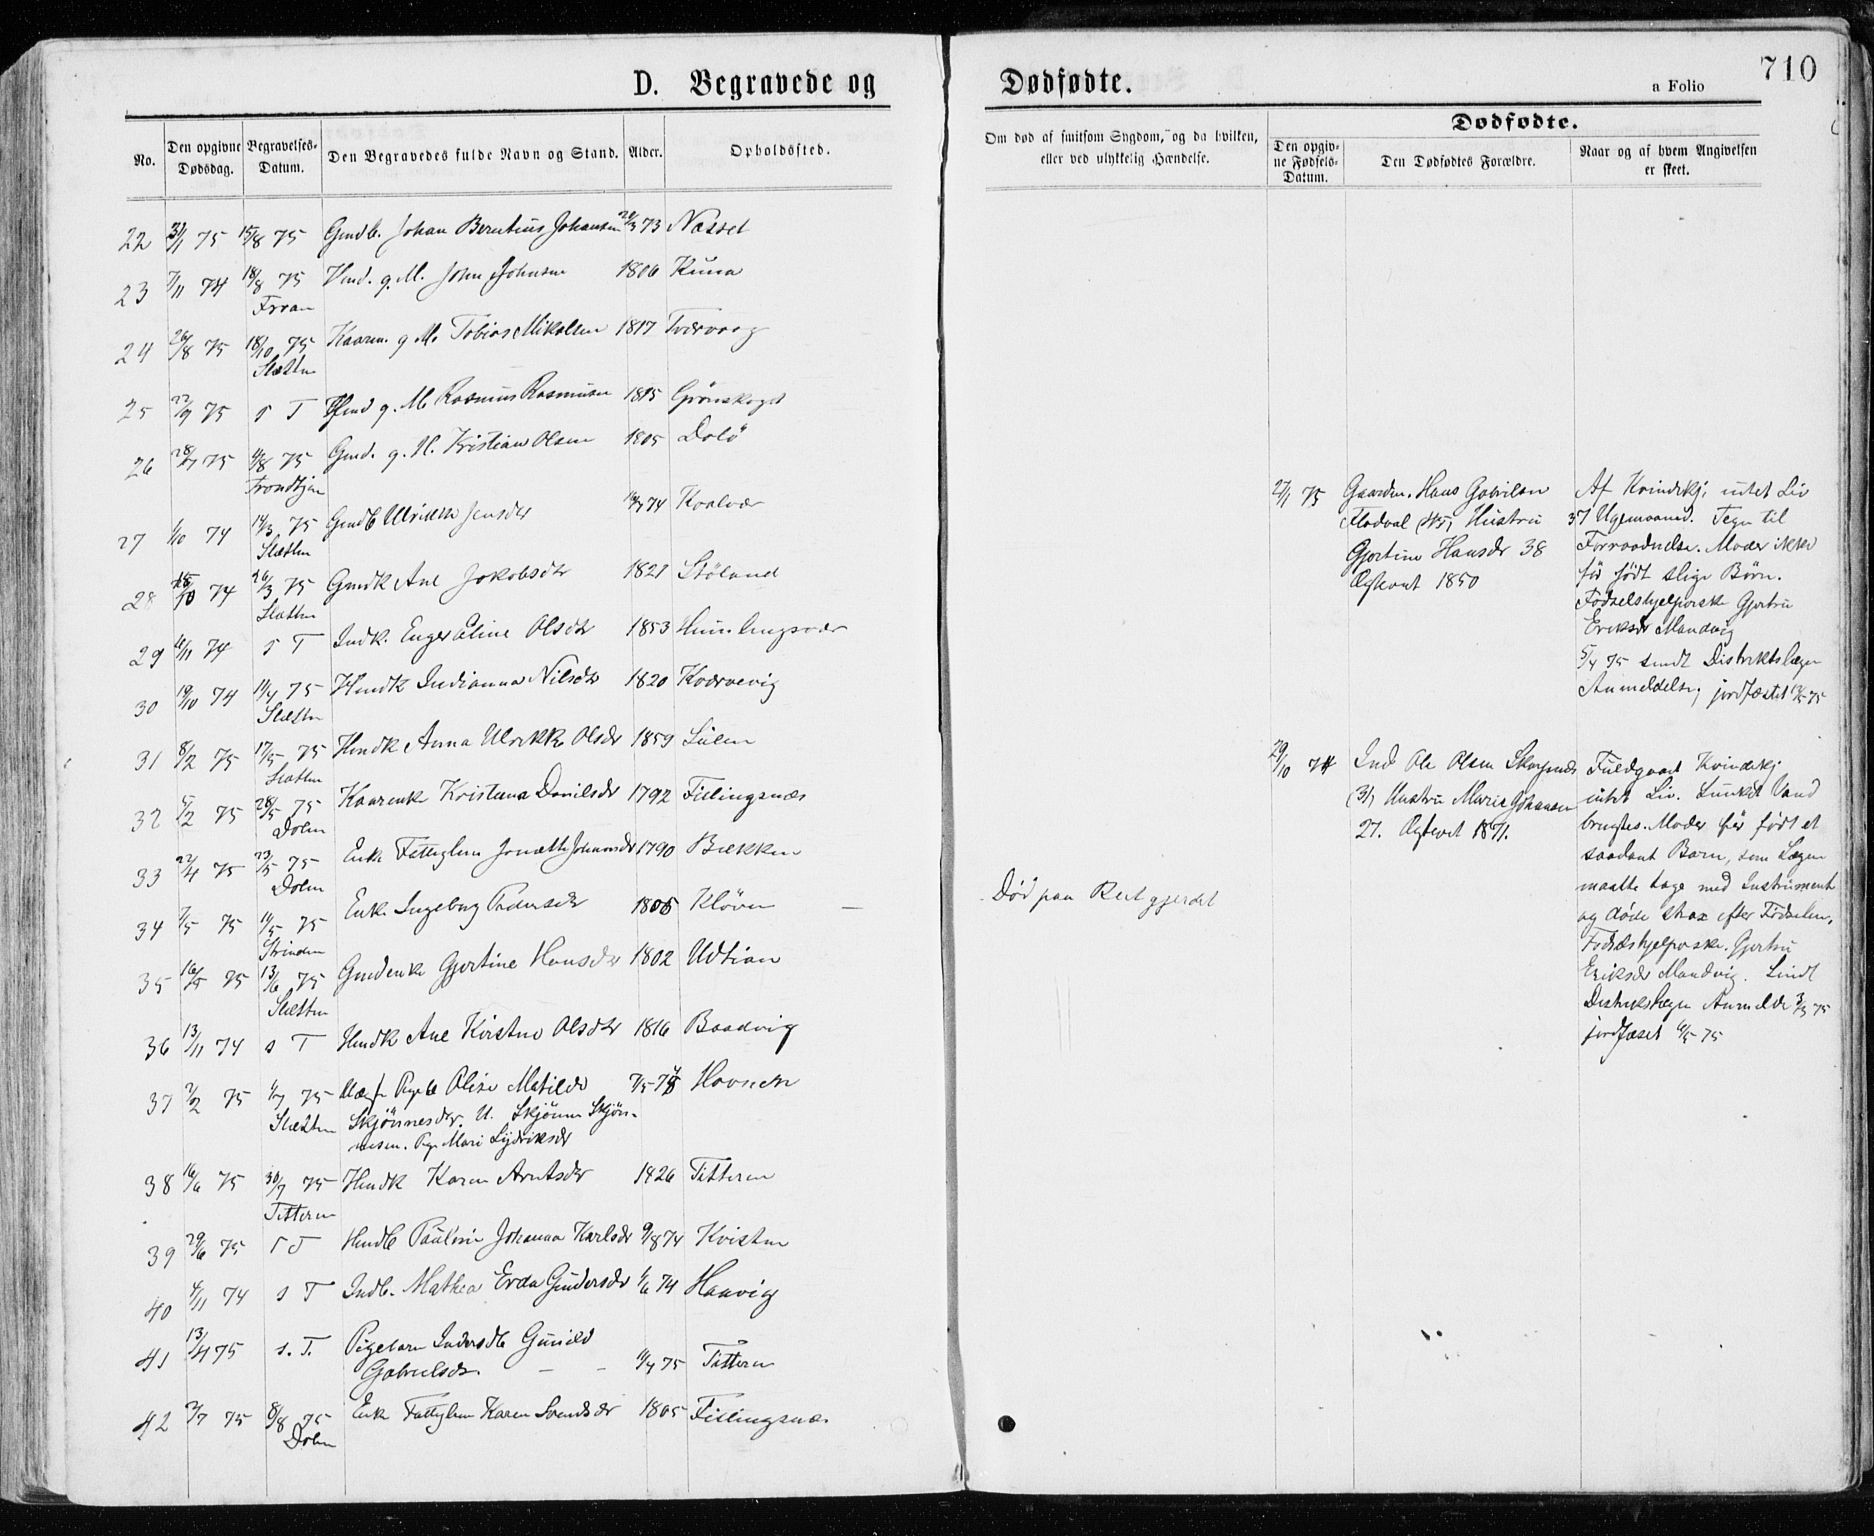 D. Begravede og Dødfødte.
a Folio 710
No.
Den opgivne Dødsdag.
Begravelses-Datum.
Den Begravedes fulde Navn og Stand.
Alder.
Opholdssted.
Om død af smitsom Sygdom, og da hvilken,
eller ved ulykkelig Hændelse.
Dødfødte.
Den opgiv-
ne Fødsels-
Datum.
Den Dødfødtes Forældre.
Naar og af hvem Angivelsen
er skeet.
22 31/1 75 15/8 75 Gmdb. Johan Berntius Johansen 73 Næsset
23 7/11 74 18/8 75 Hmd. g. M. John Johnsen 1806 Kuna
Froan
24 26/8 75 18/10 75 Kaarm. g M. Tobias Mikalsen 1817 Tværvaag
Slætten
25 22/9 75 s T Hmd g. M. Rasmus Rasmusen 1815 Grønskaget
26 28/7 75 8/8 75 Gmd. g. M. Kristian Olsen 1805 Dolö
Trondhjem
27 1/10 74 14/3 75 Gmdb Ulrikke Jensdr 74 Kvalvær
Slætten
28 15/10 74 26/3 75 Gmdk Ane Jakobsdtr 1821 Stöland
Slætten
29 11/11 74 s T Indk. Engeraline Olsdtr 1853 Humlingsvær
30 19/10 74 11/4 75 Hmdk Indianna Nilsdtr 1820 Kværnevig
Slætten
31 8/2 75 17/5 75 Hmdk Anna Ulrikke Olsdr 1859 Sulen
Slætten
32 5/2 75 28/5 75 Kaarenke Kristiana Danilsdr 1792 Fillingsnæs
Dolm
33 22/4 75 23/5 75 Enke Fattiglem Jonette Johansdr 1790 Bækken
Dolm
34 7/5 75 11/5 75 Enke Ingebrg Pedersdr 1806 Kløven — Død paa Reitgjerdet
Strinden
35 16/5 75 13/6 75 Gmdenke Gjertine Hansdr 1802 Udtian
Slætten
36 13/11 74 s T Hmdk Ane Kirstine Olsdtr 1816 Baadvig
37 2/2 75 1/7 75 Uægf Pigeb Olise Matilde 7/5 74 Havnen
Slætten Skjönnesdr. U. Skjönne Skjön-
nesen. Pige Mari Lydriksdr
38 16/6 75 30/7 75 Hmdk Karen Arntsdr 1826 Titteren
Titteren
39 29/6 75 s T Hmdb Pauline Johanna Karlsdr 9/8 74 Kvisten
40 4/11 74 s T Indb. Mathea Erda Gundersdr 1/6 74 Haavig
41 13/4 75 s. T. Pigebarn Indersdb Gunild
Gabrielsdr. — — 11/4 75 Titteren
42 2/7 75 8/8 75 Enke Fattiglem Karen Svendsdr 1805 Fillingsnæs
Dolm
27/1 75 Gaardm. Hans Gabrilsen
Flodval (45) Hustru
Gjertine Hansdr 38
Ægteviet 1850
Af Kvindekj. intet Liv
37 Ugemaaned. Tegn til
Forraadnelse. Moder ikke
før født slige Børn.
Fødselshjelperske Gjertru
Eriksdr Mandvig
5/4 75 sendt Distriktslægen
Anmeldelse, jordfæstet 75
29/10 74 Ind Ole Olsen Skarpnæs
(31) Hustru Marie Johansen
27. Ægteviet 1871.
Fuldgaaet Kvindekj
intet Liv. Lunket Vand
brugtes. Moder før født et
saadant Barn, som Lægen
maatte tage med Instrument
og døde strax efter Fødselen.
Fødselshjelperske. Gjertru
Eriksdr Mandvig. Sendt
Distriktslægen Anmeldr 75
jordfæstet 6/5 75